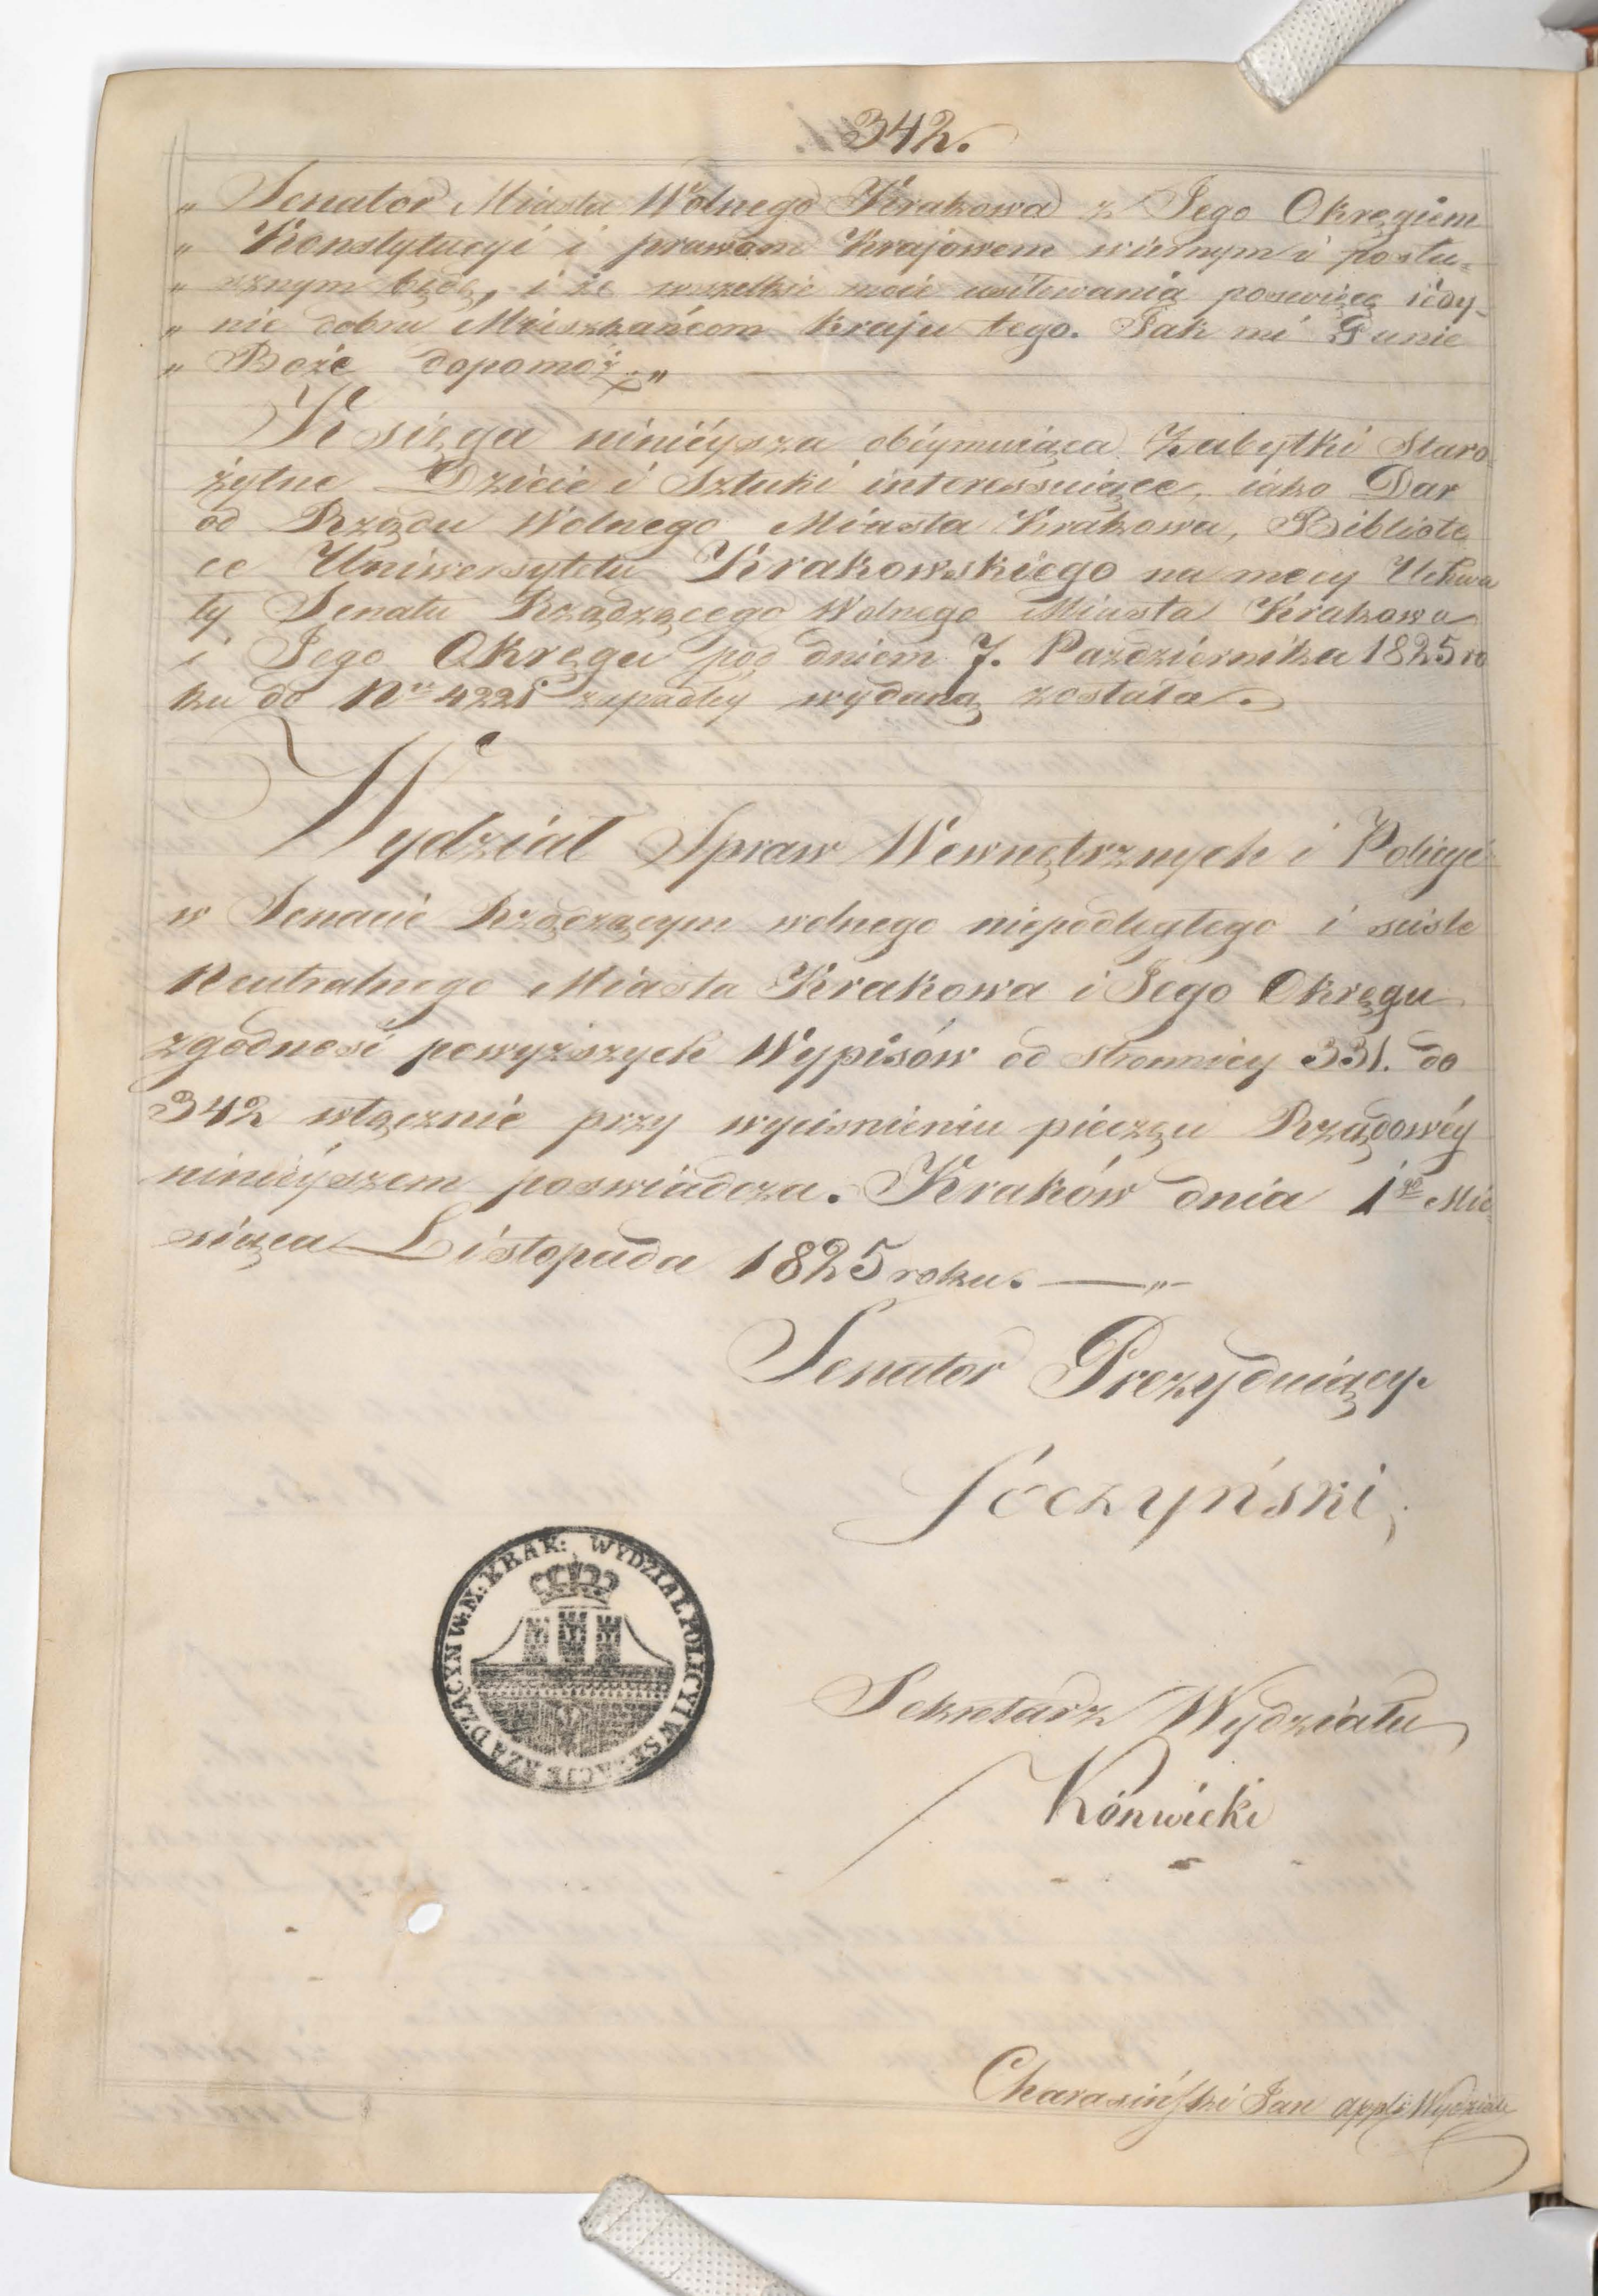 342.
„ Senator Miasta Wolnego Krakowa z Jego Okręgiem
„ Konstytucyi i prawom Krajowem wiernym i posłu-
„ sznym będę, i że wszelkie moie usiłowania poswięcę iedy-
„ nie dobru Mieszkańcom kraju tego. Tak mi Panie
„ Boże dopomoż. „
Księga ninieysza obeymuiąca Zabytki Staro
żytne Dzieie i Sztuki interessuiące, iako Dar
od Rządu Wolnego Miasta Krakowa, Bibliote
ce Uniwersytetu Krakowskiego na mocy Uchwa
ły Senatu Rządzącego Wolnego Miasta Krakowa
i Jego Okręgu pod dniem 7. Października 1825 ro
ku do Nru 4221 zapadłey wydaną została.
Wydział Spraw Wewnętrznych i Policyi
w Senacie Rządzącym wolnego niepodległego i sciśle
Neutralnego Miasta Krakowa i Jego Okręgu
zgodność powyższych Wypisów od stronnicy 331. do
342 włącznie przy wycisnieniu pieczęci Rządowéy
ninieyszem poswiadcza. Kraków dnia 1go Mie
siąca Listopada 1825 roku. — „ —
Senator Prezyduiący.
Soczyński
WYDZIAŁ POLICYI W SENACIE RZĄDZĄCYM W. M: KRAK:
Sekretarz Wydziału
Konwicki
Charasiński Jan appl: Wydziału